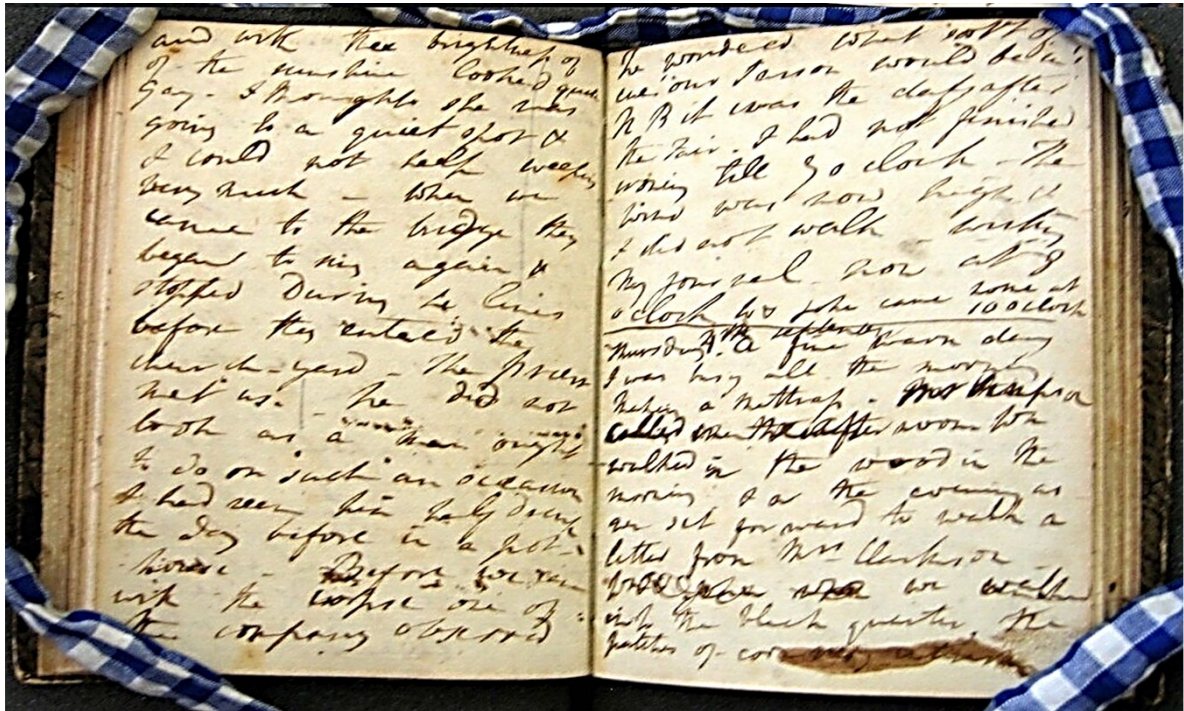 and with the brightness of
of the sunshine looked quite
Gay. I thought she was
going to a quiet spot &
I could not help weeping
very much — When we
came to the bridge they
began to sing again &
stopped during 4 lines
before they entered the
church-yard — The priest
met us — he did not
look as a man ought
to do on such an occasion
I had seen him half drunk
the day before in a pot-
house — Before we came
with the corpse one of
the company observed
he wondered what sort of
Parson would be in!
N B it was the day after
the Fair. I had not finished
ironing till 7 o clock — The
wind was now high &
I did not walk — writing
my journal now at 8
o clock Wm & John came home at
10 oclock
Thursday 4th September A fine warm day
I was busy all the morning
making a mattrass — Mr Thompson
called in the afternoon Wm
walked in the wood in the
morning & in the evening as
we set forward to walk a
letter from Mrs Clarkson —
we walked
into the black quarter. The
patches of corn very